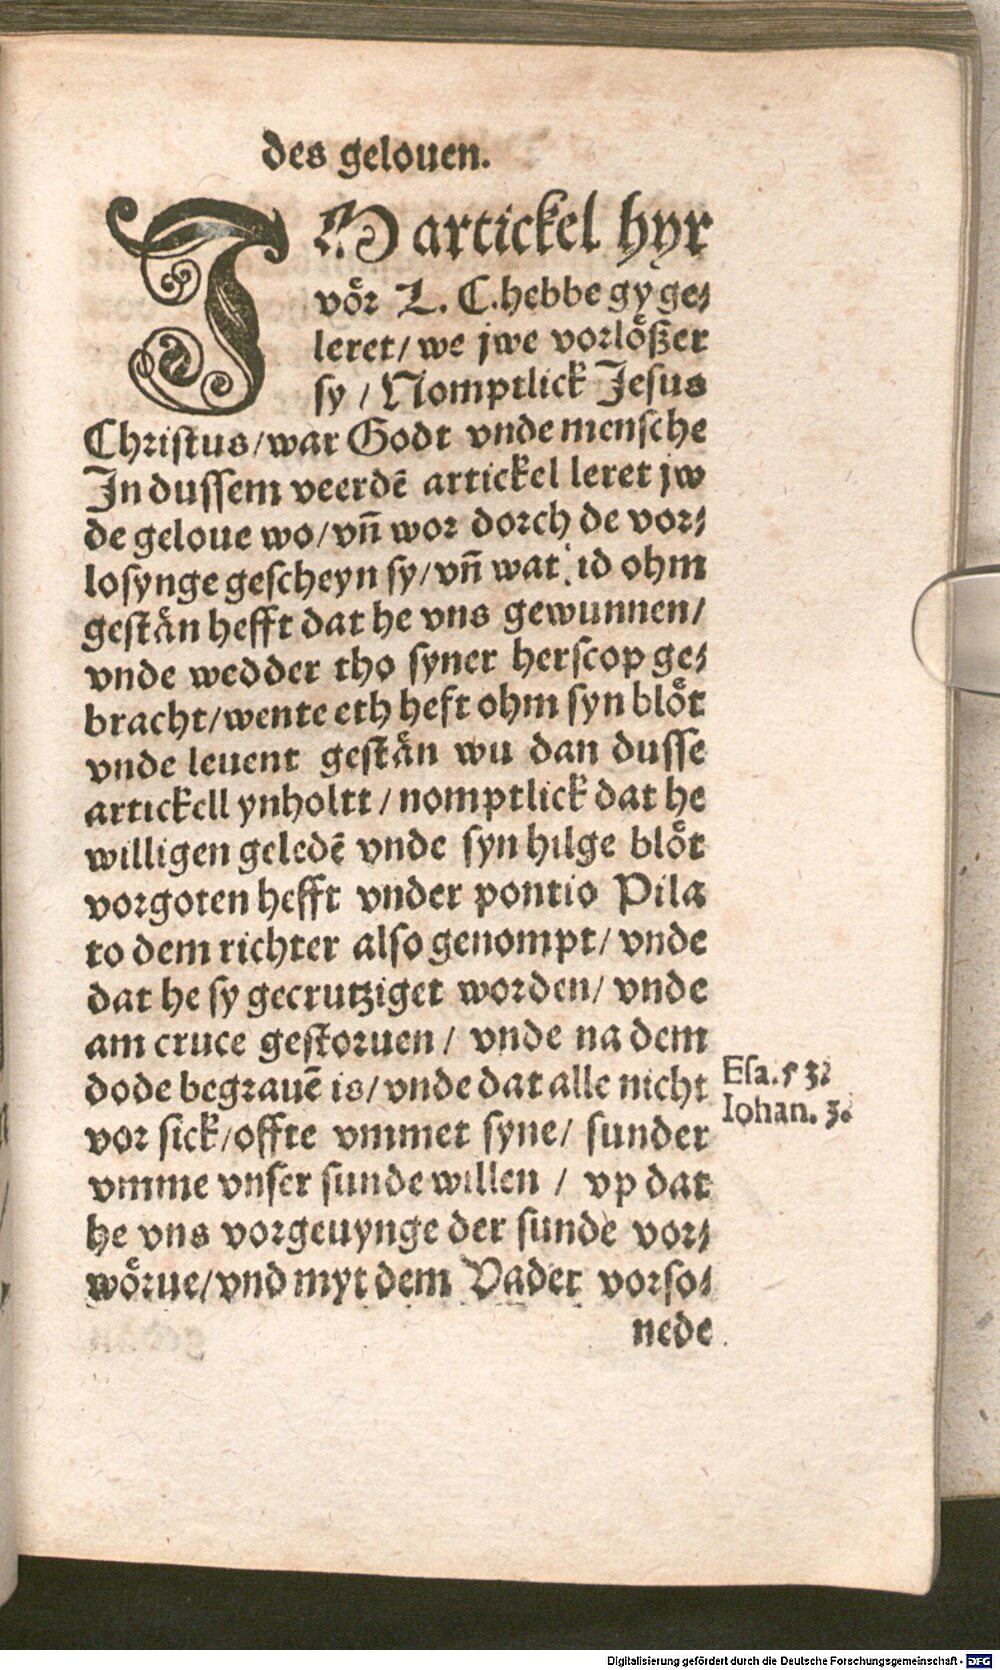 des gelouen.
JM artickel hyr
vör L. C. hebbe gy ge⸗
leret/ we jwe vorlößer
sy / Nomptlick Jesus
Christus/war Godt vnde mensche
In dussem veerdē artickel leret jw
de geloue wo/vn̄ wor dorch de vor⸗
losynge gescheyn sy/vn̄ wat id ohm
gestån hefft dat he vns gewunnen/
vnde wedder tho syner herscop ge⸗
bracht/wente eth heft ohm syn bloͤt
vnde leuent gestån wu dan dusse
artickell ynholtt / nomptlick dat he
willigen geledē vnde syn hilge bloͤt
vorgoten hefft vnder pontio Pila
to dem richter also genompt/ vnde
dat he sy gecrutziget worden/ vnde
am cruce gestoruen / vnde na dem
dode begrauē is/vnde dat alle nicht
Esa. 53.
Iohan. 3.
vor sick/offte vmmet syne/ sunder
vmme vnser sunde willen / vp dat
he vns vorgeuynge der sunde vor⸗
woͤrue/vnd myt dem Vader vorso⸗
nede
Digitalisierung gefördert durch die Deutsche Forschungsgemeinschaft - DFG